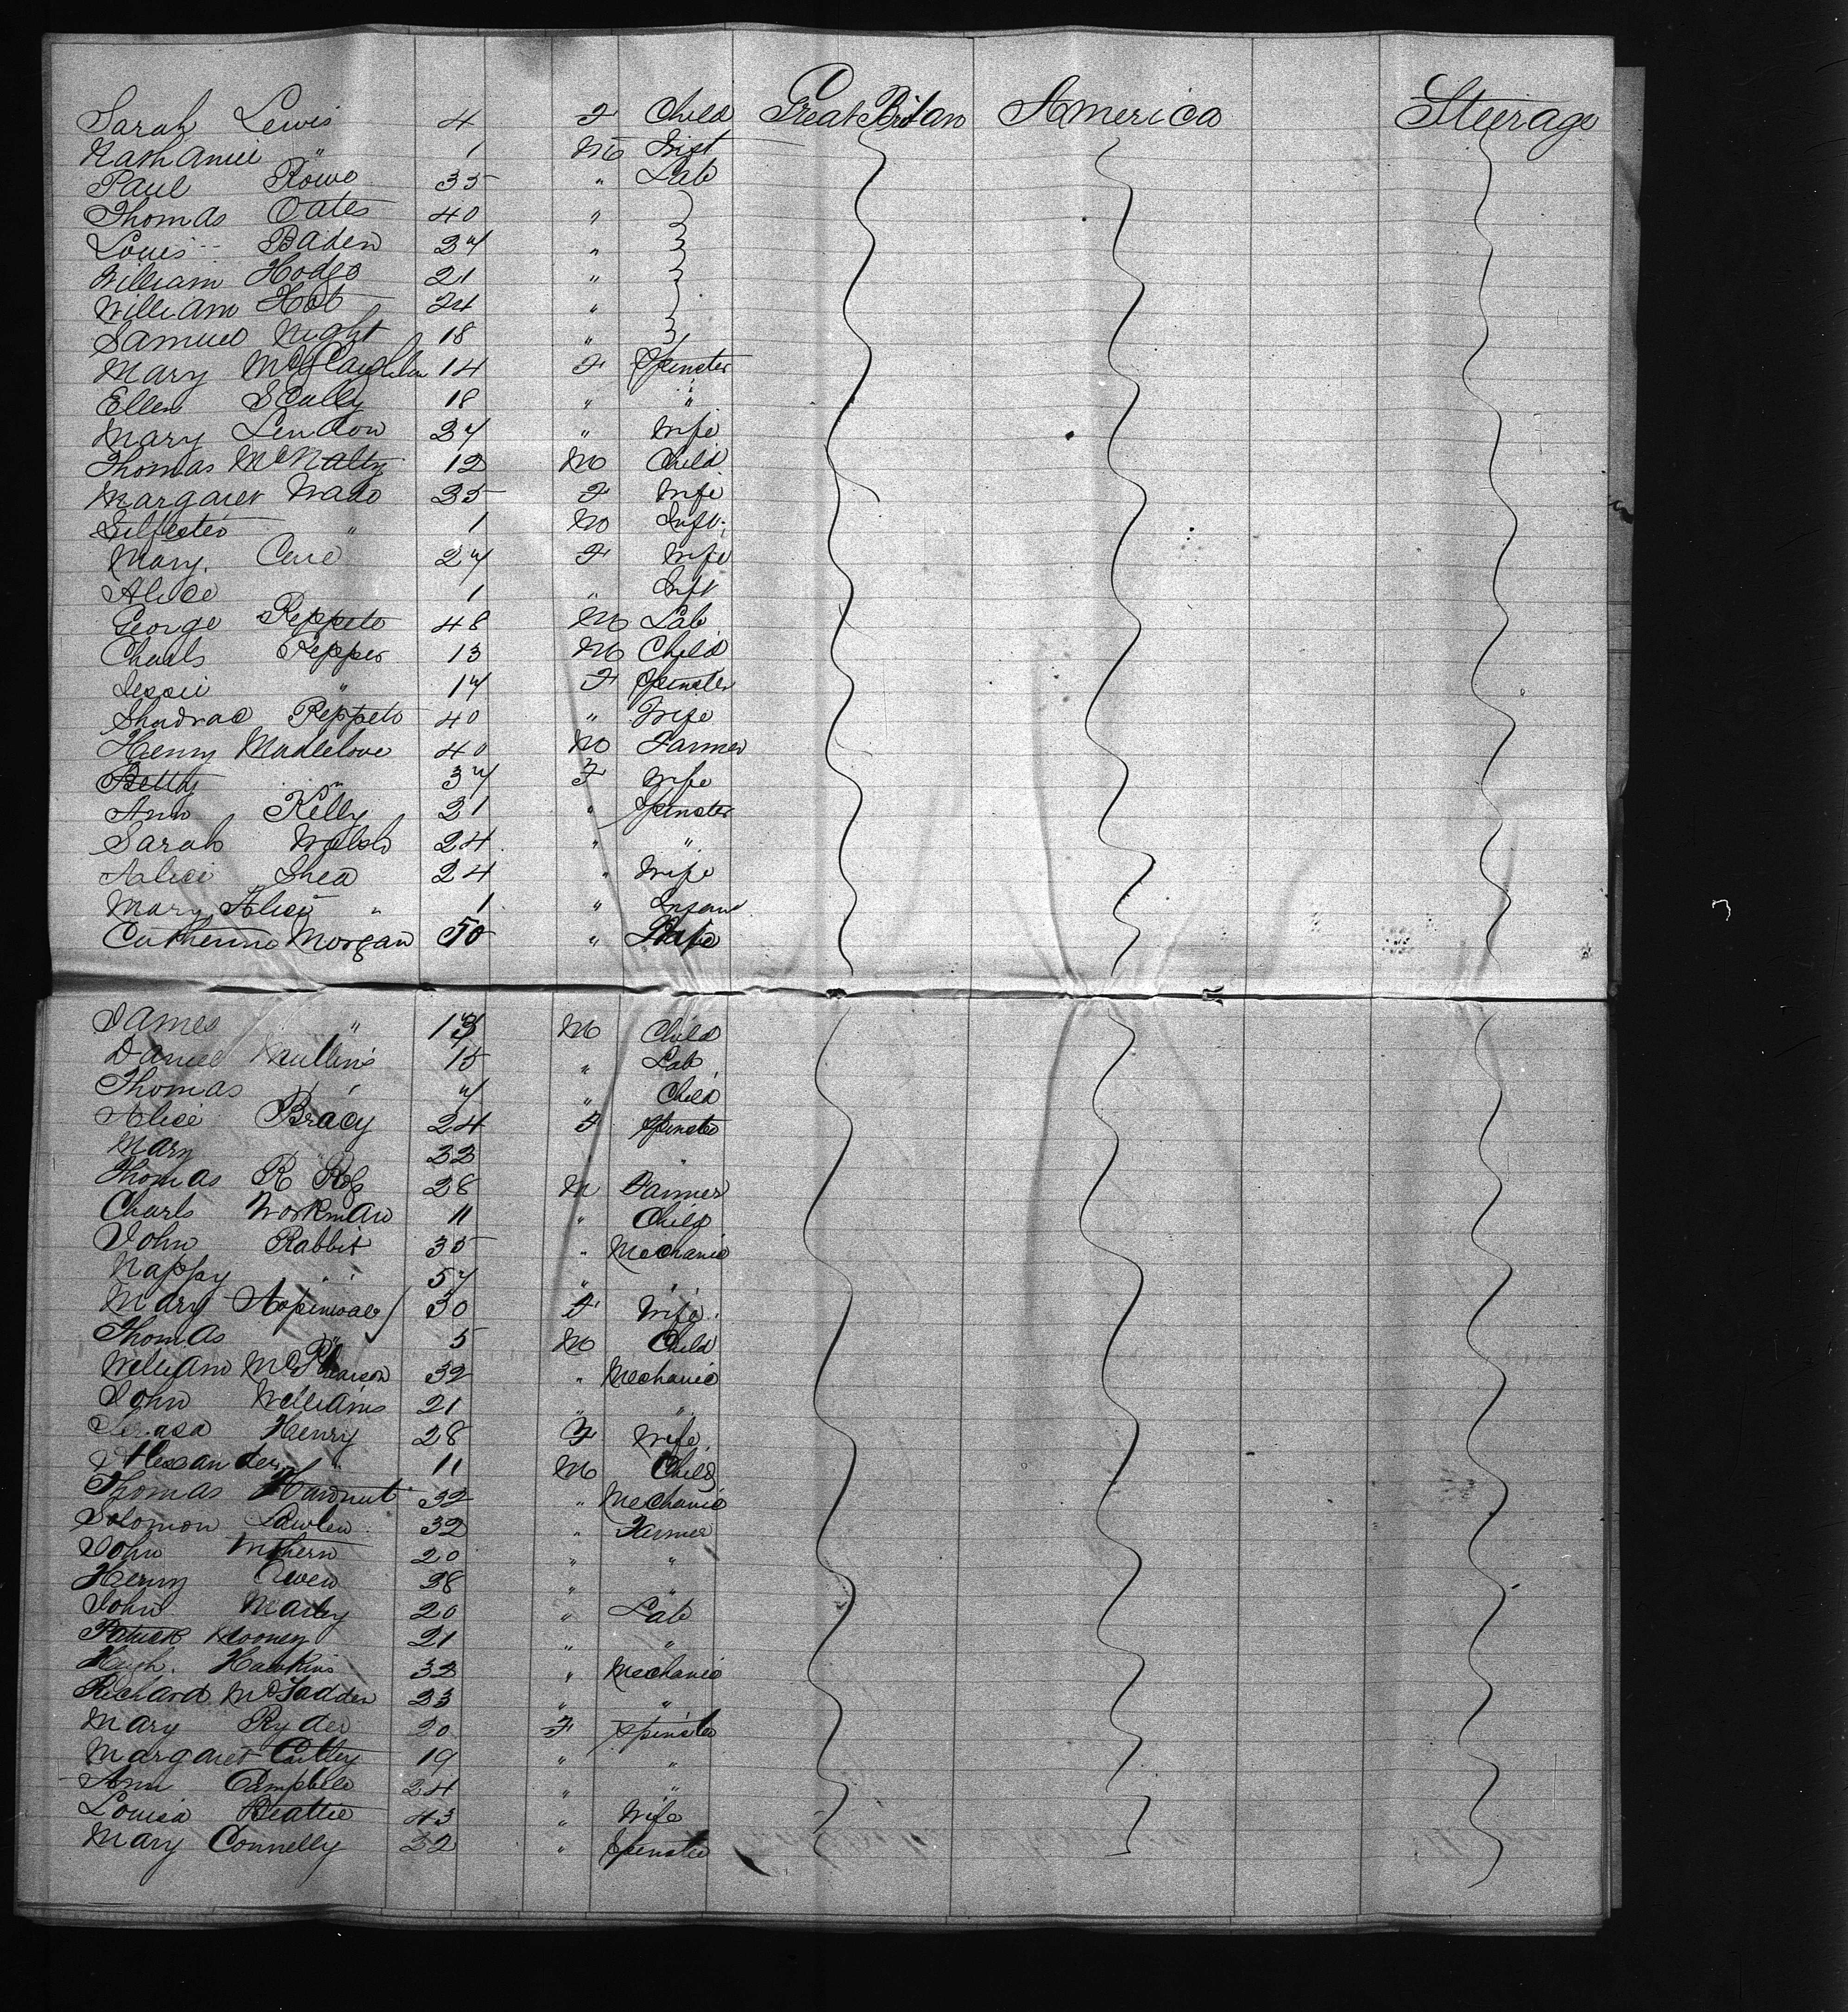 Sarah Lewis 4 F Child Great Britan America Steerage
" 1 M Inft
Paul Rowe 35 " Lab
Thomas Oates 40 "
Louis Baden 24 "
William Hodge 21 "
William 24 "
Samuel Night 18 "
Mary McGlaughlin 14 F Spinster
Ellen Scully 18 " "
Mary 24 " Wife
Thomas McNalty 12 M Child
Margaret Wade 35 F Wife
" 1 M Inft
Mary 24 F Wife
Alice 1 " Inft
George Reppeto 48 M Lab
Charls Pepper 13 M Child
Jessie " 14 F Spinster
Shadrac Reppeto 40 " Wife
Henry Madlelove 40 M Farmer
Betty " 34 F Wife
Ann Kelly 21 " Spinster
Sarah Walsh 24 " "
Alice Shea 24 " Wife
Mary Alice " 1 " Infant
Catherine Morgan 50 " Wife
James " M Child
Daniel Mullins 15 " Lab
Thomas " Child
Alice Bracy 24 F Spinster
Mary "
Thomas R 28 M Farmer
Charls Workman 11 " Child
John Rabbit 35 " Mechanic
Nappy " 54 " "
Mary Aspinwall 30 F Wife
Thomas " 5 M Child
William McPhearson 32 " Mechanic
John Williams 21 " "
Henry 28 F Wife
Alexander " 11 M Child
Thomas 32 " Mechanic
Solomon Lawlen 32 " Farmer
John 20 " "
Henry Owen 38 " "
John Marley 20 " Lab
Patrick Mooney 21 " "
Hugh Hawkins 32 " Mechanic
Richard McFadden 23 " "
Mary Ryder 20 F Spinster
Margaret Cutley 19 " "
Ann Campbell 24 " "
Louisa Beattie 43 " Wife
Mary Connelly 22 " Spinster